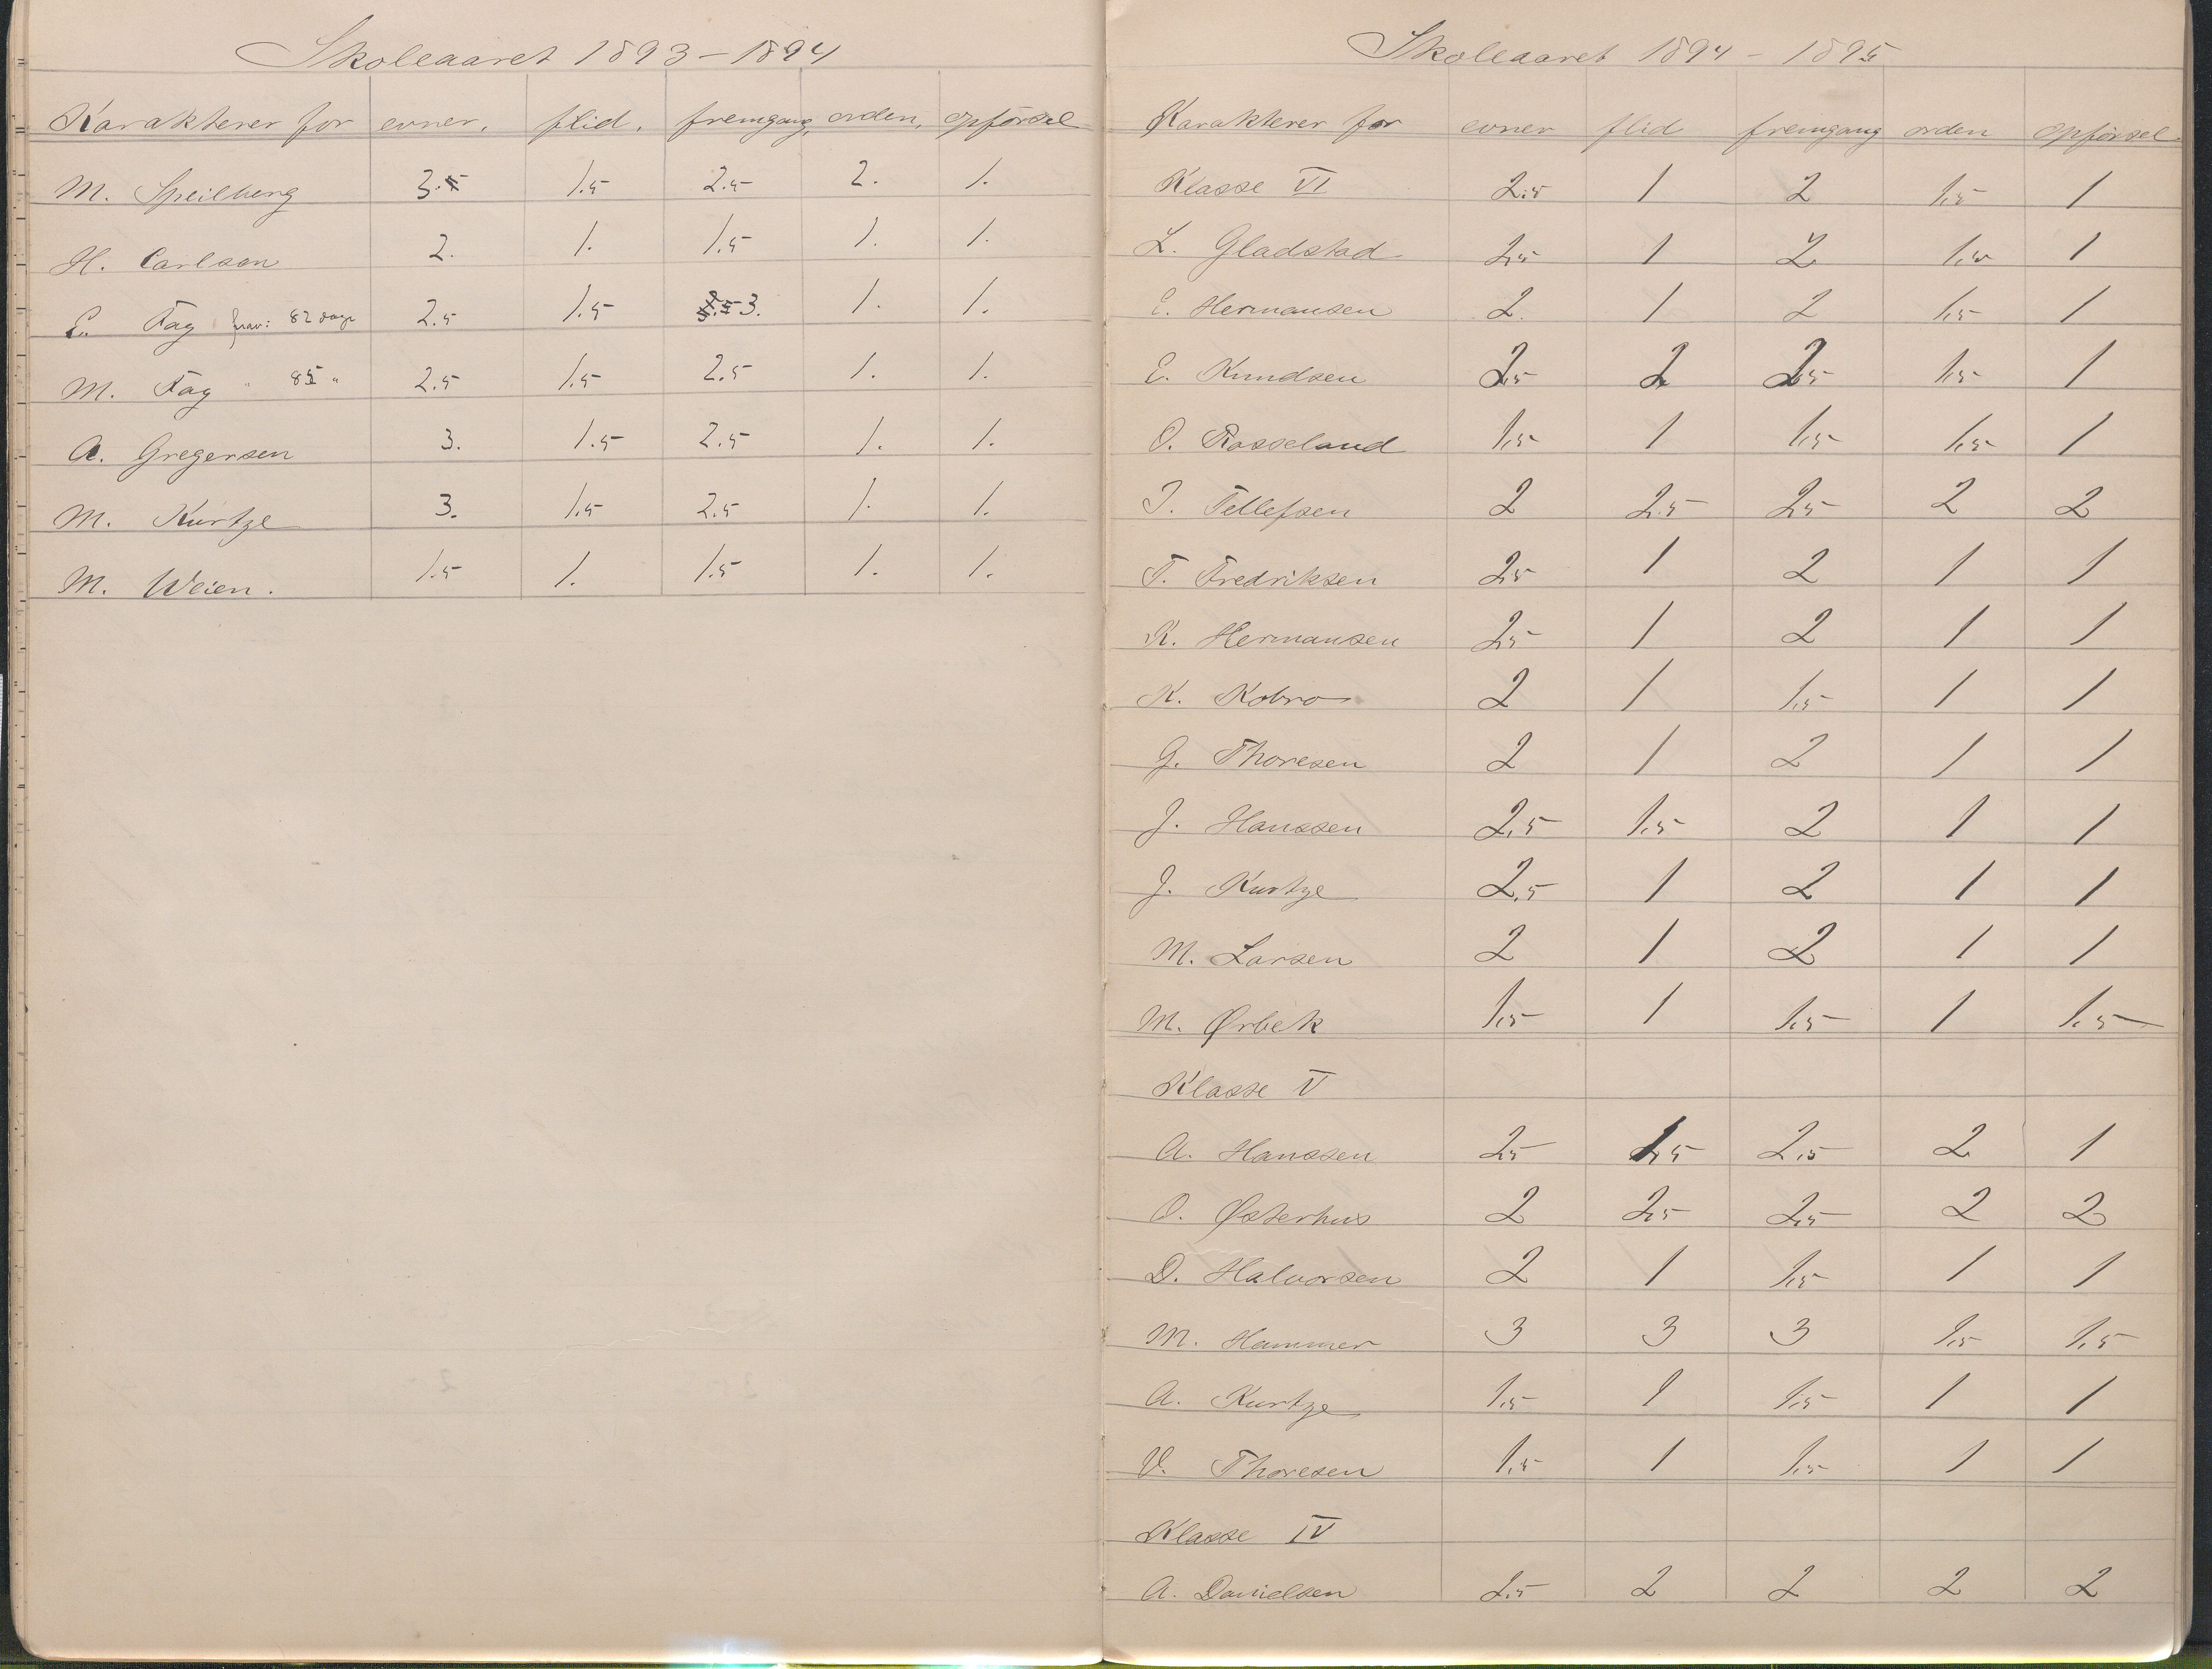 Skoleaaret 1893-1894
Karakterer for evner. flid. fremgang, orden, opførsel
M. Speilberg 3. 1.5 2.5 2. 1.
H. Carlsen 2. 1. 1.5 1. 1.
E. Fag frav: 82 dage 2.5 1.5 3. 1. 1.
M. Fag " 85 " 2.5 1.5 2.5 1. 1.
A. Gregersen 3. 1.5 2.5 1. 1.
M. Kurtze 3. 1.5 2.5 1. 1.
M. Weien. 1.5 1. 1.5 1. 1.
Skoleaaret 1894-1895
Karakterer for evner flid fremgang orden opførsel.
Klasse VI 2.5 1 2 1.5 1
L. Gladstad 2.5 1 2 1.5 1
E. Hermansen 2. 1 2 1.5 1
E. Knudsen 2.5 2 2.5 1.5 1
O. Rosseland 1.5 1 1.5 1.5 1
T. Tellefsen 2 2.5 2.5 2 2
T. Fredriksen 2.5 1 2 1 1
K. Hermansen 2.5 1 2 1 1
K. Kobro 2 1 1.5 1 1
G. Thoresen 2 1 2 1 1
J. Hanssen 2.5 1.5 2 1 1
J. Kurtze 2.5 1 2 1 1
M. Larsen 2 1 2 1 1
M. Ørbek 1.5 1 1.5 1 1.5
Klasse V
A. Hanssen 2.5 2.5 2 1
O. Østerhus 2 2.5 2.5 2 2
D. Halvorsen 2 1 1.5 1 1
M. Hammer 3 3 3 1.5 1.5
A. Kurtze 1.5 1 1.5 1 1
V. Thoresen 1.5 1 1.5 1 1
Klasse IV
A. Danielsen 2.5 2 2 2 2